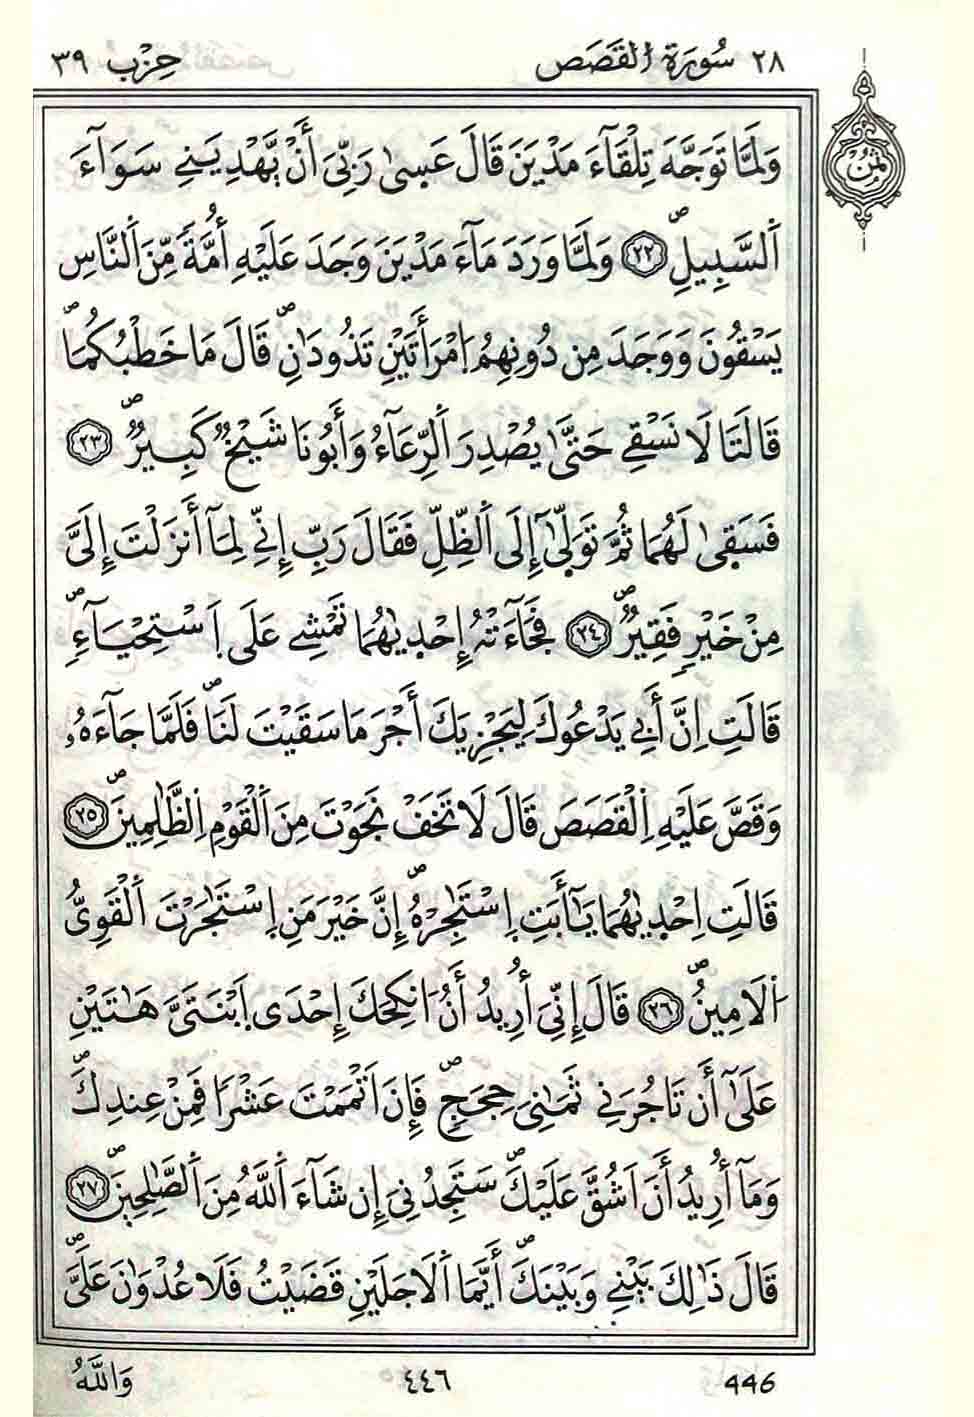 ٢٨ سُورَةُ اُ۬لْقَصَصِ حِزْب ٣٩
ثمن
وَلَمَّا تَوَجَّهَ تِلْقَآءَ مَدْيَنَ قَالَ عَسٰى رَبِّىَ أَنْ يَّهْدِيَنِے سَوَآءَ
اَ۬لسَّبِيلِۖ ٢٢ وَلَمَّا وَرَدَ مَآءَ مَدْيَنَ وَجَدَ عَلَيْهِ أُمَّةً مِّنَ اَ۬لنَّاسِ
يَسْقُونَ وَوَجَدَ مِن دُونِهِمُ اُ۪مْرَأَتَيْنِ تَذُودَانِۖ قَالَ مَا خَطْبُكُمَاۖ
قَالَتَا لَا نَسْقِے حَتّٰى يُصْدِرَ اَ۬لرِّعَآءُ وَأَبُونَا شَيْخٌ كَبِيرٌۖ ٢٣
فَسَقٰى لَهُمَا ثُمَّ تَوَلّٰىٓ إِلَى اَ۬لظِّلِّ فَقَالَ رَبِّ إِنِّے لِمَآ أَنزَلْتَ إِلَىَّ
مِنْ خَيْرٍ فَقِيرٌۖ ٢٤ فَجَآءَتْهُ إِحْدٜيٰهُمَا تَمْشِے عَلَى اَ۪سْتِحْيَآءٍۖ
قَالَتِ اِنَّ أَبِے يَدْعُوكَ لِيَجْزِيَكَ أَجْرَ مَا سَقَيْتَ لَنَاۖ فَلَمَّا جَآءَهُۥ
وَقَصَّ عَلَيْهِ اِ۬لْقَصَصَ قَالَ لَا تَخَفْ نَجَوْتَ مِنَ اَ۬لْقَوْمِ اِ۬لظّٰلِمِينَۖ ٢٥
قَالَتِ اِحْدٜيٰهُمَا يَـٰٓأَبَتِ اِ۪سْتَـٰٔجِرْهُۖ إِنَّ خَيْرَ مَنِ اِ۪سْتَـٰٔجَرْتَ اَ۬لْقَوِىُّ
اُ۬لَامِينُۖ ٢٦ قَالَ إِنِّىَ أُرِيدُ أَنُ ا۟نكِحَكَ إِحْدَى اَ۪بْنَتَىَّ هَـٰتَيْنِ
عَلَىٰٓ أَن تَاجُرَنِے ثَمَـٰنِىَ حِجَجٍۖ فَإِنَ اَتْمَمْتَ عَشْرًا فَمِنْ عِندِكَۖ
وَمَآ أُرِيدُ أَنَ اَشُقَّ عَلَيْكَۖ سَتَجِدُنِىَ إِن شَآءَ اَ۬للَّهُ مِنَ اَ۬لصَّـٰلِحِينَۖ ٢٧
قَالَ ذَٰلِكَ بَيْنِے وَبَيْنَكَۖ أَيَّمَا اَ۬لَاجَلَيْنِ قَضَيْتُ فَلَا عُدْوَٰنَ عَلَىَّۖ
446 ٤٤٦ وَاللَّهُ